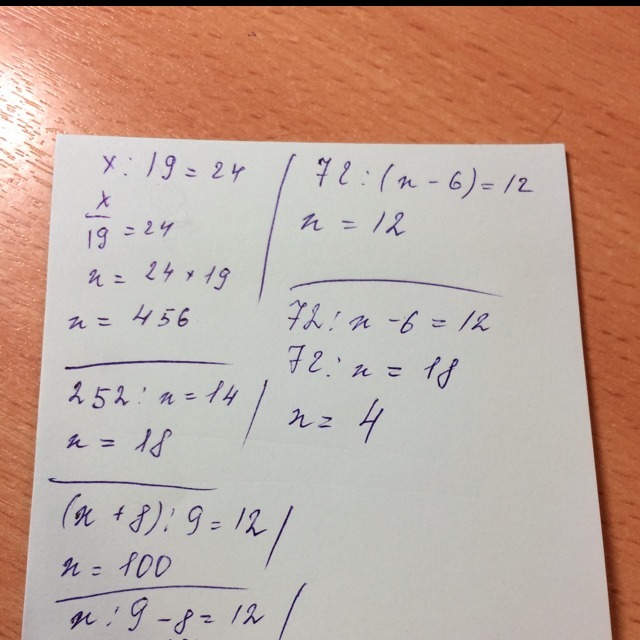 x : 19 = 24
x/19 = 24
x = 24 × 19
x = 456
252 : x = 14
x = 18
(x + 8) : 9 = 12
x = 100
x : 9 - 8 = 12
72 : (x - 6) = 12
x = 12
72 : x - 6 = 12
72 : x = 18
x = 4